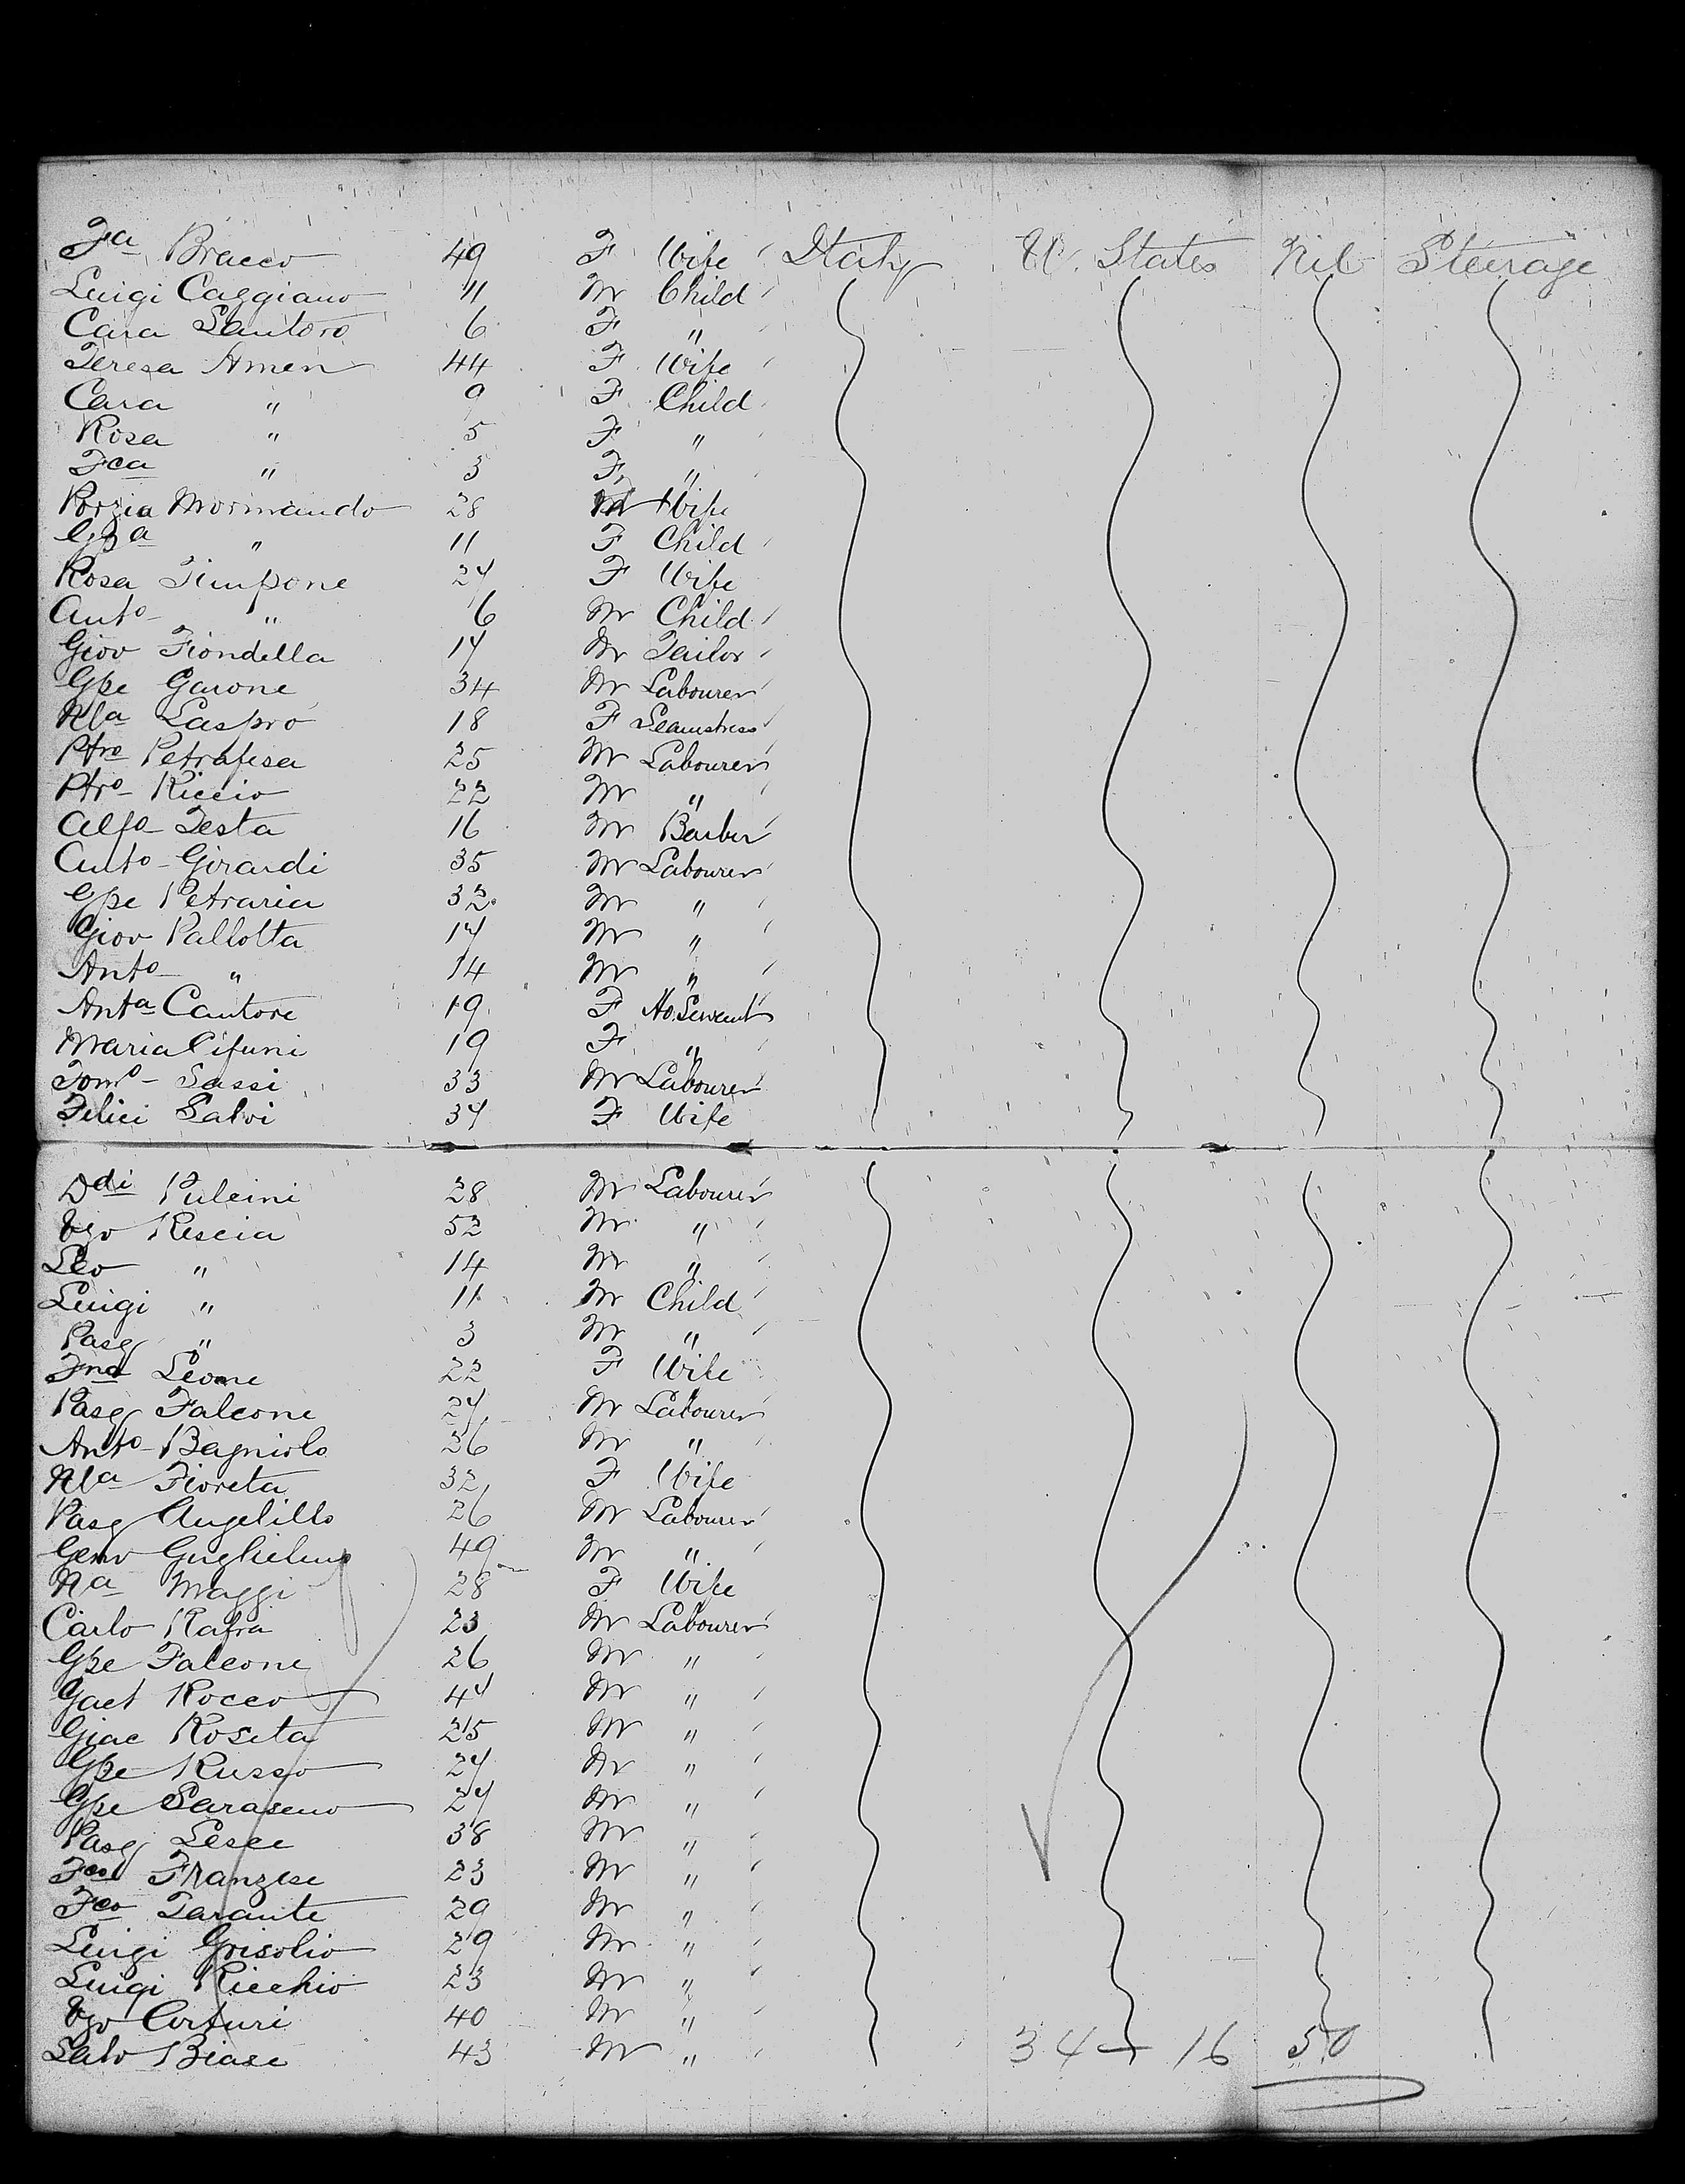 Fa Bracco 49 F Wife Italy U. States Nil Steerage
Luigi Caggiano 11 M Child
Cara Santoro 6 F "
Teresa Amen 44 F Wife
Cara " 9 F Child
Rosa " 5 F "
Fca " 3 F "
Porzia Mormando 28 Wife
Gpa " 11 F Child
Rosa Timpone 24 F Wife
Anto " 6 M Child
Giov Fiondella 14 M Tailor
Gpe Garone 34 M Labourer
Laspro 18 F Seamstress
Ptro Petrafesa 25 M Labourer
Ptro Riccio 22 M "
Alfo Testa 16 M Barber
Anto Girardi 35 M Labourer
Gpe Petraria 32 M "
Giov Pallotta 14 M "
Anto " 14 M "
Anta Cantore 19 F Ho. Servant
Maria Cifuni 19 F "
Tomo Sassi 33 M Labourer
Felici Salvi 34 F Wife
Ddi Pulcini 28 M Labourer
Vzo Rescia 52 M "
Leo " 14 M "
Luigi " 11 M Child
Pasq " 3 M "
Fna Leone 22 F Wife
Pasq Falcone 24 M Labourer
Anto Bagniolo 26 M "
Fioreta 32 F Wife
Pasq Angelillo 26 M Labourer
Genv Guglielmo 49 M "
Na Maggi 28 F Wife
Carlo Rafra 23 M Labourer
Gpe Falcone 26 M "
Gaet Rocco 44 M "
Giac Roseta 25 M "
Gpe Russo 24 M "
Gpe Saraseno 27 M "
Pasq Lesce 38 M "
Fco Franzese 23 M "
Fco Tarante 29 M "
Luigi Grisolio 29 M "
Luigi Ricchio 23 M "
Vzo Corturi 40 M "
Salv Biase 43 M " 34 - 16 50